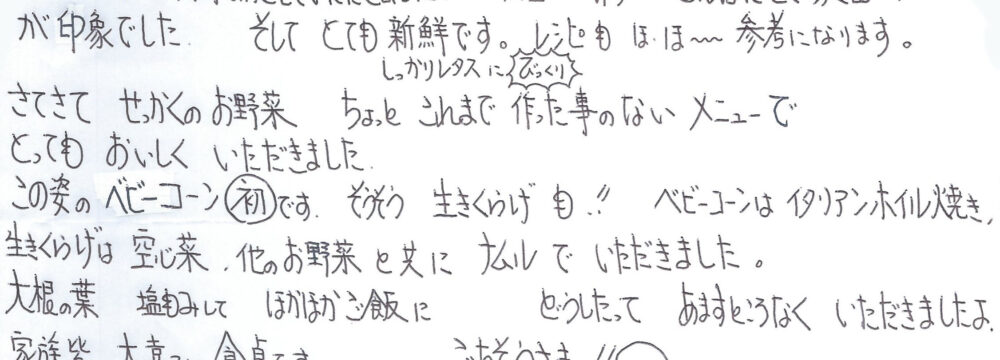 が印象でした　そして とても 新鮮です。 レシピも ほ・ほ〜〜 参考になります。
しっかりレタスに びっくり
さてさて　せっかくのお野菜　ちょっと これまで 作った事のない メニューで
とっても おいしく いただきました.
この姿の ベビーコーン 初です. そうそう 生きくらげ も!! ベビーコーンは イタリアンホイル焼き,
生きくらげは 空心菜, 他のお野菜 と共に ナムル で いただきました。
大根の葉　塩もみして　ほかほかご飯に　どうしたって　あますところなく いただきましたよ.
家族皆